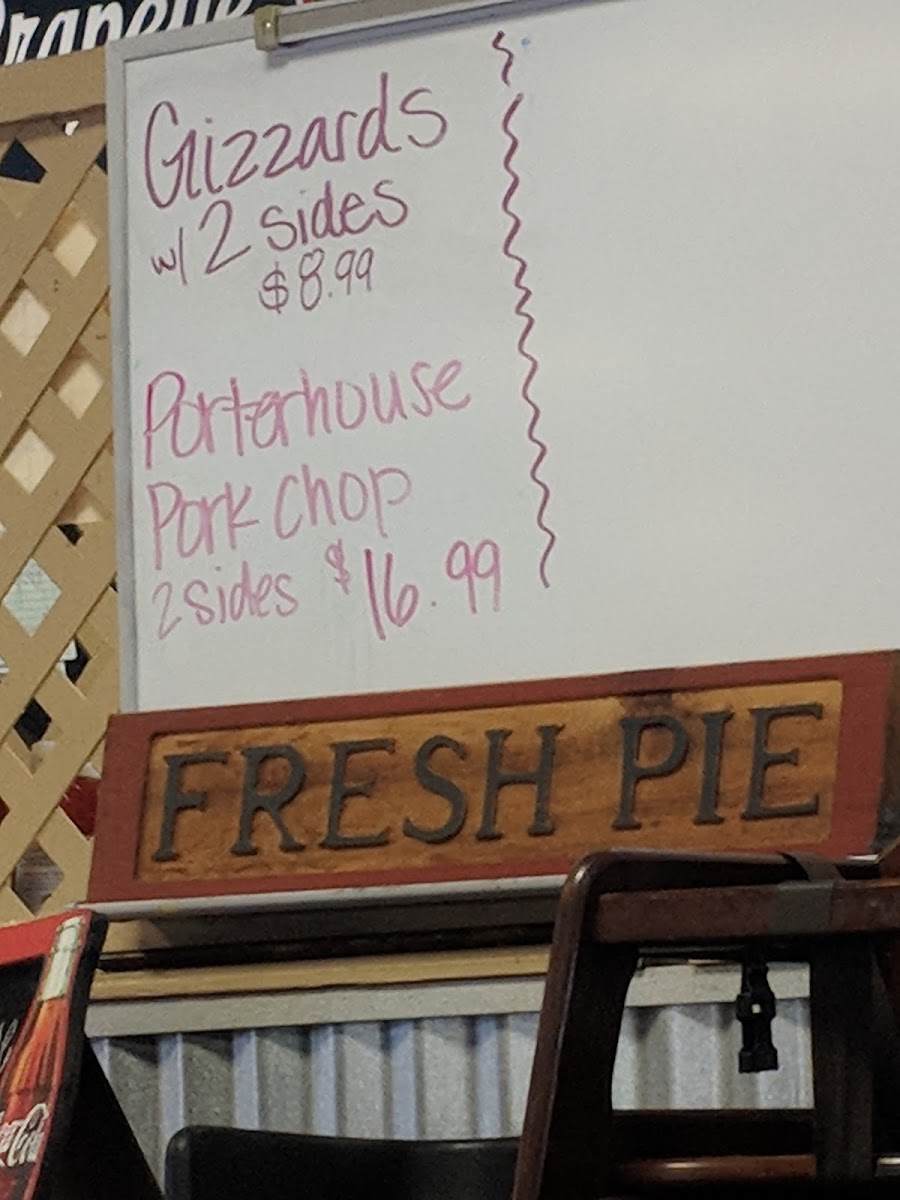 Grapette
Gizzards
w/ 2 sides
$8.99
Porterhouse
Pork Chop
2 sides $16.99
FRESH PIE
Coca-Cola